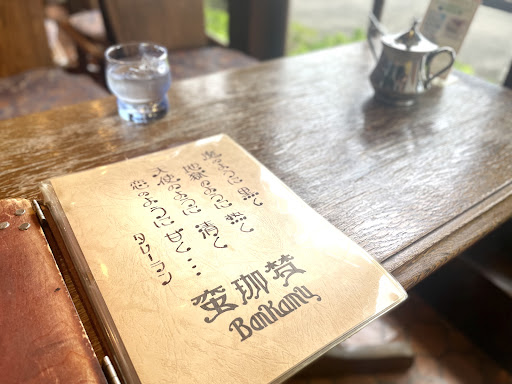 のように 黒く
地獄のように 熱く
天使のように 清く
恋のように 甘く…
タリーラン
蛮珈梵
BanKamy